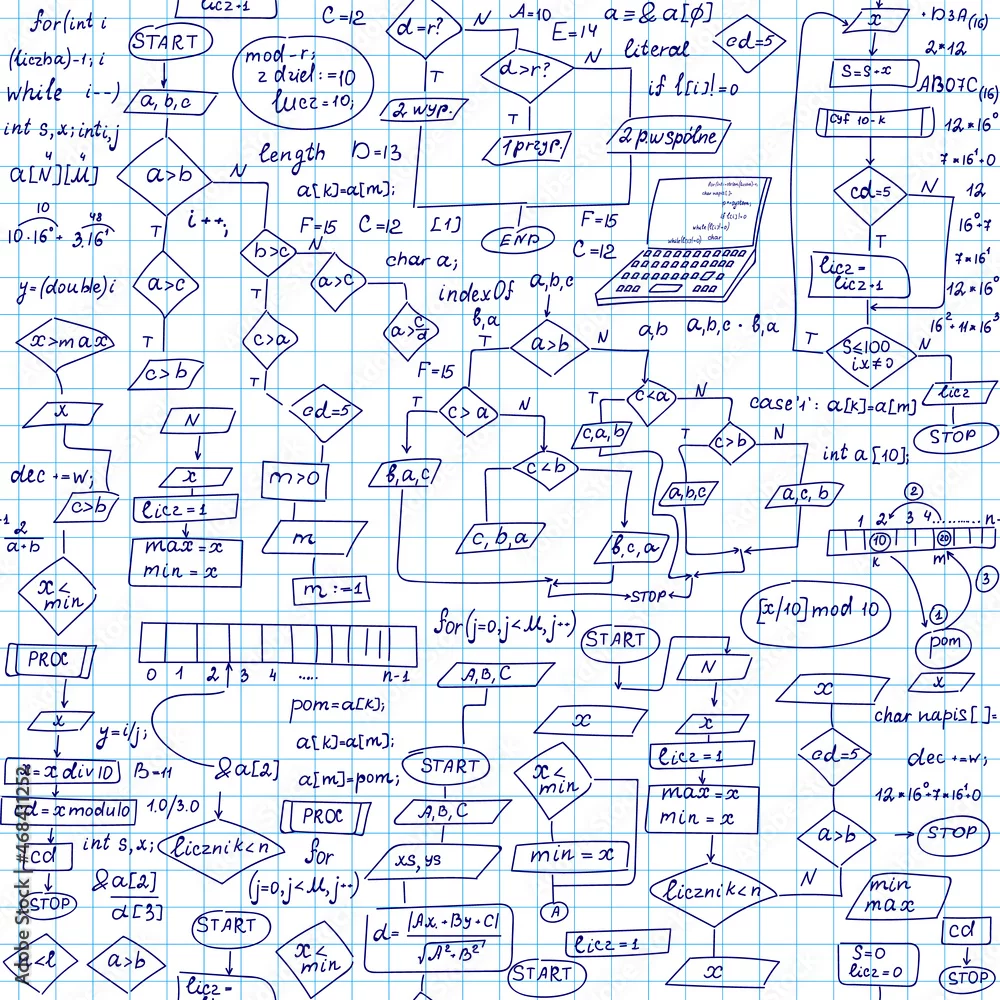 licz+1
for(int i
(liczba)-1; i
while i--)
int s,x; int i,j
a[N][M]
4 4
10 48
10·16⁰+ 3.16¹
y=(double)i
START
a,b,c
a>b
N
T
i++;
a>c
T
c>b
b>c
N
T
a>c
c>a
T
a>c/d
cd=5
m>0
m
m:=-1
mod-r;
z dziel:=10
licz=10;
C=12
length D=13
a[k]=a[m];
F=15 C=12 [1]
char a;
indexOf
b,a
F=15
d=r?
N
T
2 wyp.
A=10
E=14
d>r?
N
T
1 przyp.
2 p.wspólne
END
a≡& a[ϕ]
literal
if l[i]!=0
cd=5
F=15
C=12
while(l[i]!=0) char
x
S=S+x
cyf 10-k
cd=5
N
T
licz=
licz+1
S≤100
i x≠0
T
N
licz
STOP
·D3A(16)
2*12
AB07C(16)
12*16⁰
7*16¹+0
12
16⁰+7
7*16¹
12*16⁰
16²+11*16³
a,b,c
a>b
T
N
a,b a,b,c · b,a
c>a
T
N
b,a,c
c<b
c,b,a
b,c,a
c<a
T
N
c,a,b
c>b
T
N
a,b,c
a,c,b
STOP
case'1': a[k]=a[m]
int a[10];
2
1 2 3 4........... n-
10 20
k m
3
1
pom
x>max
x
dec+=w;
c>b
-1
2
a+b
x<
min
PROC
x
=x div 10
d=x modulo
cd
STOP
N
x
licz=1
max=x
min=x
0 1 2 3 4 ..... n-1
y=i/j;
B=11
1.0/3.0
int s,x;
&a[2]
pom=a[k];
a[k]=a[m];
a[m]=pom;
PROC
licznik<n
for
(j=0,j<M,j++)
&a[2]
d[3]
<l
a>b
START
licz=
x<
min
for(j=0,j<M,j++)
A,B,C
START
A,B,C
xs,ys
d= |Ax+By+C|
√A²+B²
START
N
x
licz=1
max=x
min=x
licznik<n
N
x
x
x<
min
min=x
A
licz=1
START
[x/10] mod 10
x
cd=5
a>b
STOP
x
char napis[]=
dec+=w;
12*16⁰+7*16¹+0
min
max
S=0
licz=0
cd
STOP
Adobe Stock | #468411252